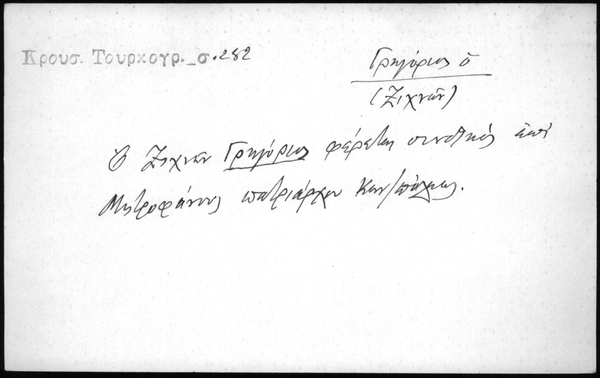 Κρουσ. Τουρκογρ._σ.282
Γρηγόριος ὁ
(Ζιχνῶν)
Ὁ Ζιχνῶν Γρηγόριος φέρεται συνοδικός ἐπί
Μητροφάνους πατριάρχου Κων/πόλεως.